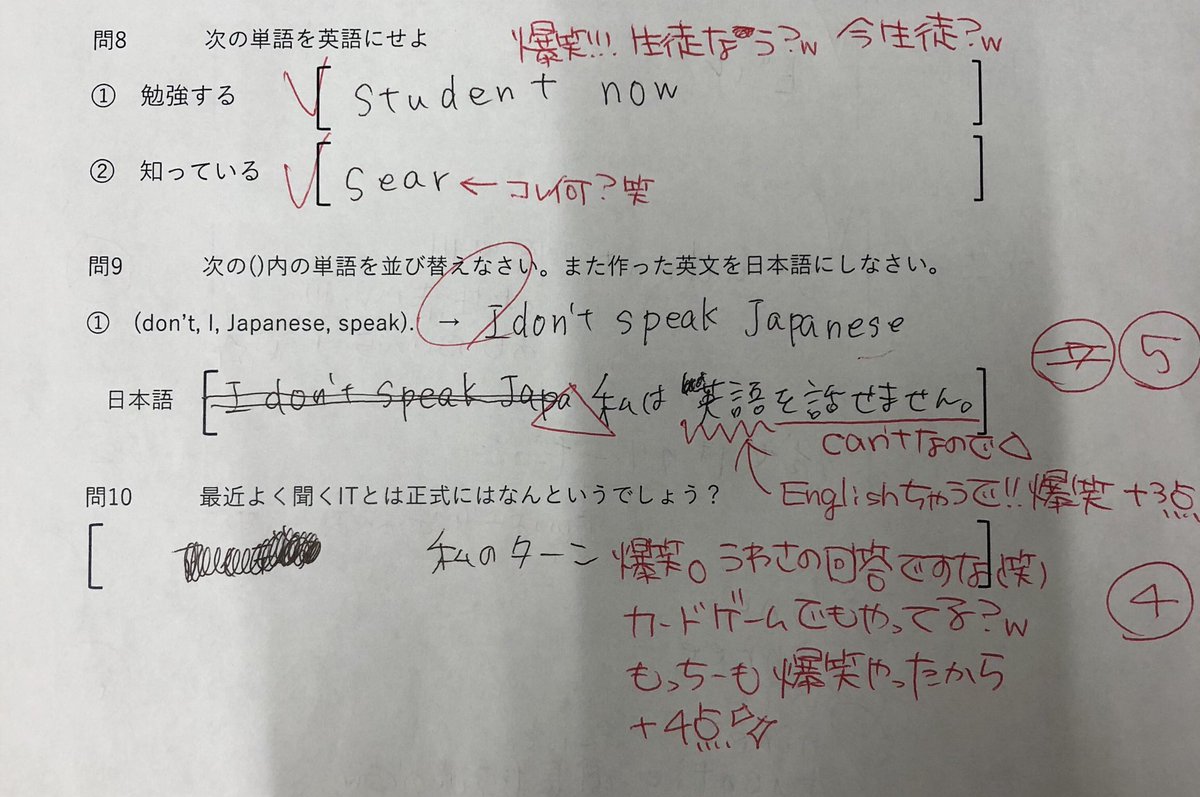 問8 次の単語を英語にせよ 爆笑!!! 生徒なう?w 今生徒?w
① 勉強する [ student now ]
② 知っている [ sear ] ← コレ何?笑
問9 次の()内の単語を並び替えなさい。また作った英文を日本語にしなさい。
① (don't, I, Japanese, speak). → I don't speak Japanese
5
日本語 [ I don't speak Japa 私は 英語を話せません。]
can'tなので△
Englishちゃうで!! 爆笑 +3点
問10 最近よく聞くITとは正式にはなんというでしょう?
[ 私のターン ] 爆笑。うわさの回答ですな(笑)
カードゲームでもやってる?w
4
もっちーも 爆笑やったから
+4点